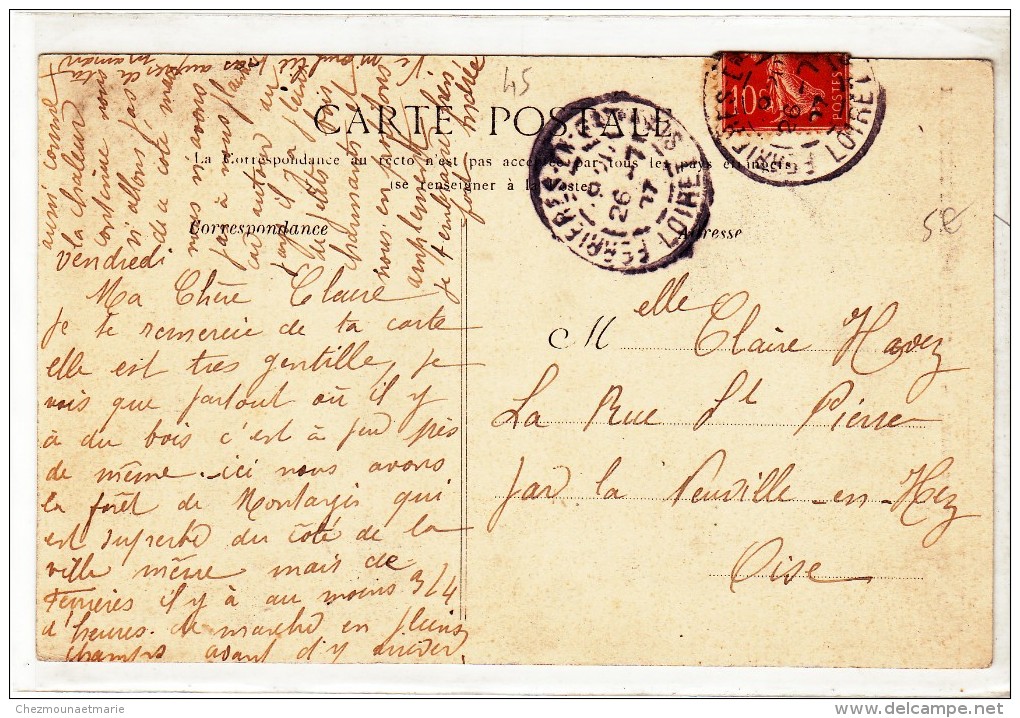 45
CARTE POSTALE
La Correspondance au recto n'est pas acceptée par tous les pays étrangers
(se renseigner à la Poste)
Correspondance
Adresse
5€
FERRIERES
26
LOIRET
10
POSTES
FERRIERES
26
LOIRET
Vendredi
Ma Chère Claire
Je te remercie de ta carte
elle est très gentille, je
vois que partout où il y
à du bois c'est à peu près
de même. ici nous avons
la forêt de Montargis qui
est superbe du côté de la
ville même mais de
Ferrières il y à au moins 3/4
d'heures de marche en pleins
champs avant d'y arriver
aussi comme
la chaleur
continue nous
n'allons pas
de ce côté même
nous ne savons
pas à nous plaindre
car autour
il y a
de petits bois
charmants pour
nous en
amplement
je t'embrasse
fort
Melle Claire Havez
La Rue St Pierre
par la Neuville-en-Hez
Oise
Chezmounaetmarie
www.delcampe.net